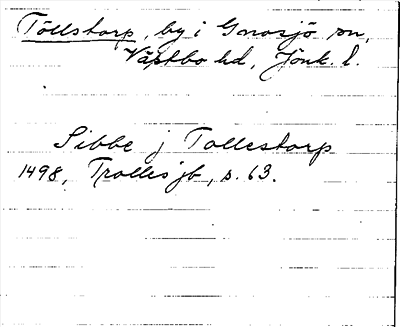 Töllstorp, by i Gnosjö sn,
Västbo hd, Jönk. l.
Sibbe j Tollestorp
1498, Trolles jb, s. 63.